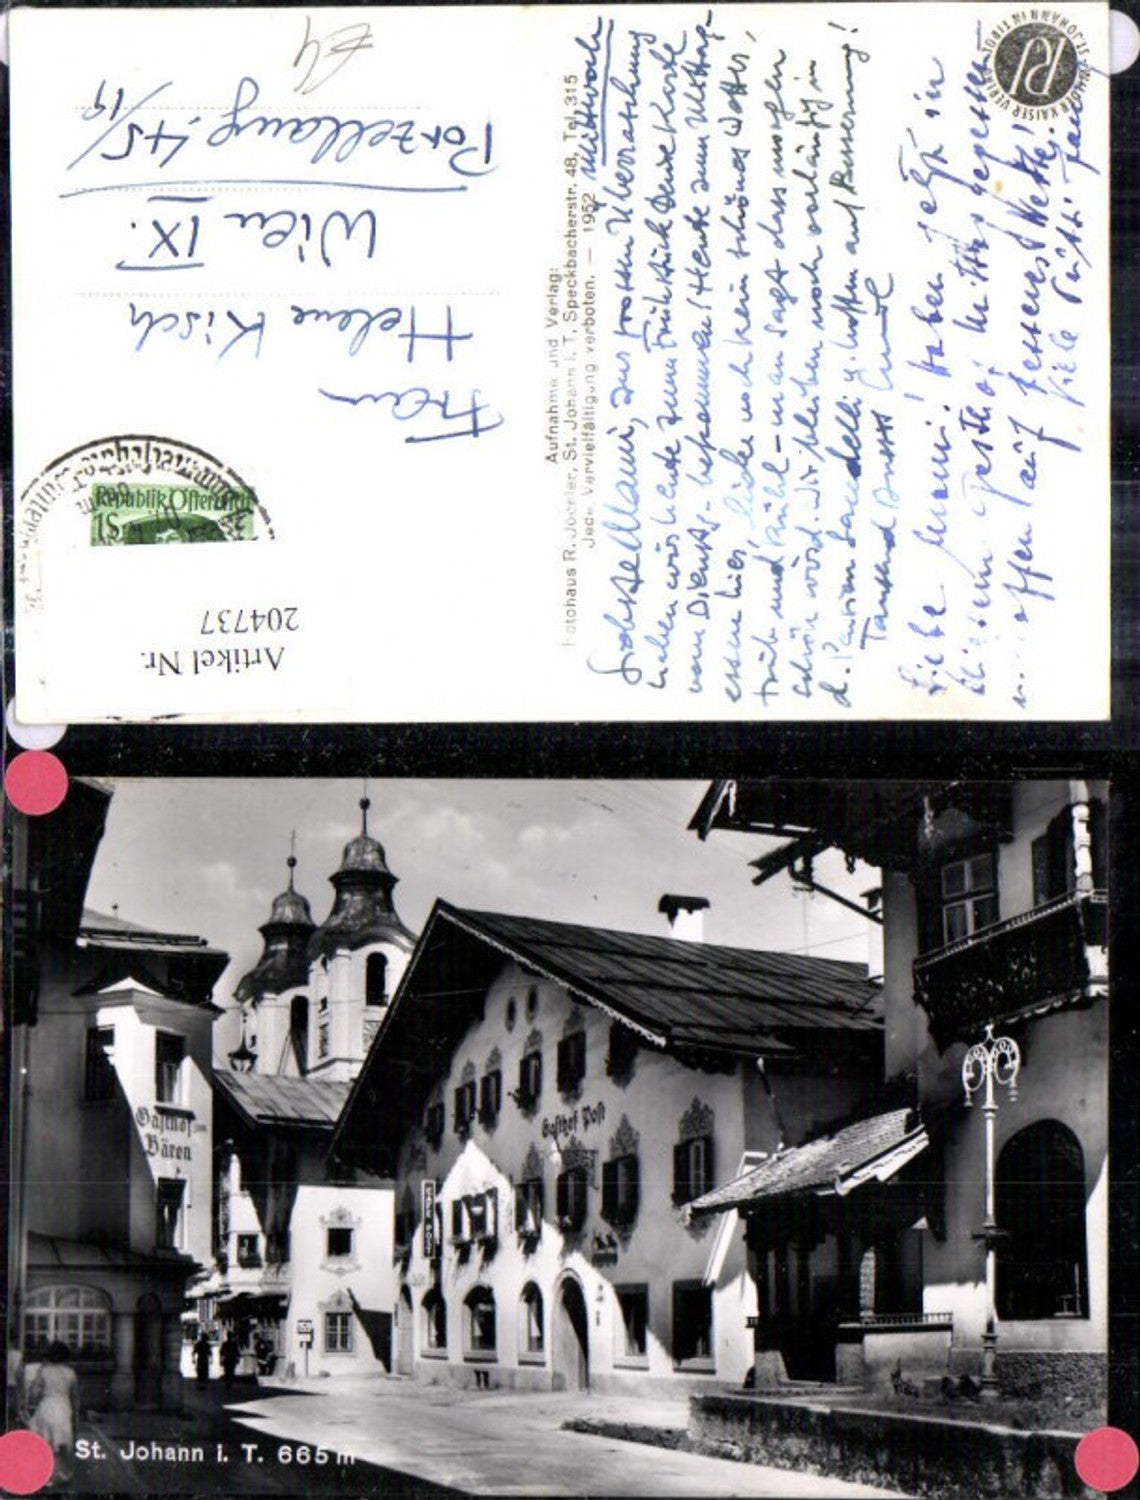 St. Johann i. T. 665 m
Gasthof zum
Bären
Gasthof Post
CAFE POST
Artikel Nr.
204737
Republik Österreich
1S
Frau
Helene Kisch
Wien IX.
Porzellang. 45
/19
Aufnahme und Verlag:
Fotohaus R. Joerler, St. Johann i. T., Speckbacherstr. 48, Tel. 315
Jede Vervielfältigung verboten. — 1952
ST. JOHANN IN TIROL
WILDER KAISER VERLAG
RJ
Mittwoch
Mami, zur grossen Überraschung
haben wir heute zum Frühstück Deine Karte
vom Dienstg. bekommen! Heute zum Mittag-
essen hier, leider noch kein schönes Wetter,
früh und kühl - man sagt dass morgen
schön wird. Wir bleiben noch vorläufig in
d. Pension u. hoffen auf Besserung!
Tausend
Liebe Mami! Haben jetzt in
diesem Gasthof Mittag gegessen
u. hoffen auf besseres Wetter!
Viele